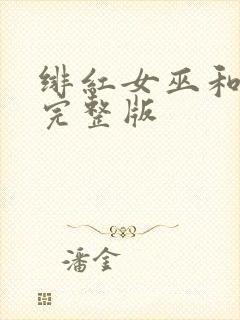 绯红女巫和
完整版
潘金